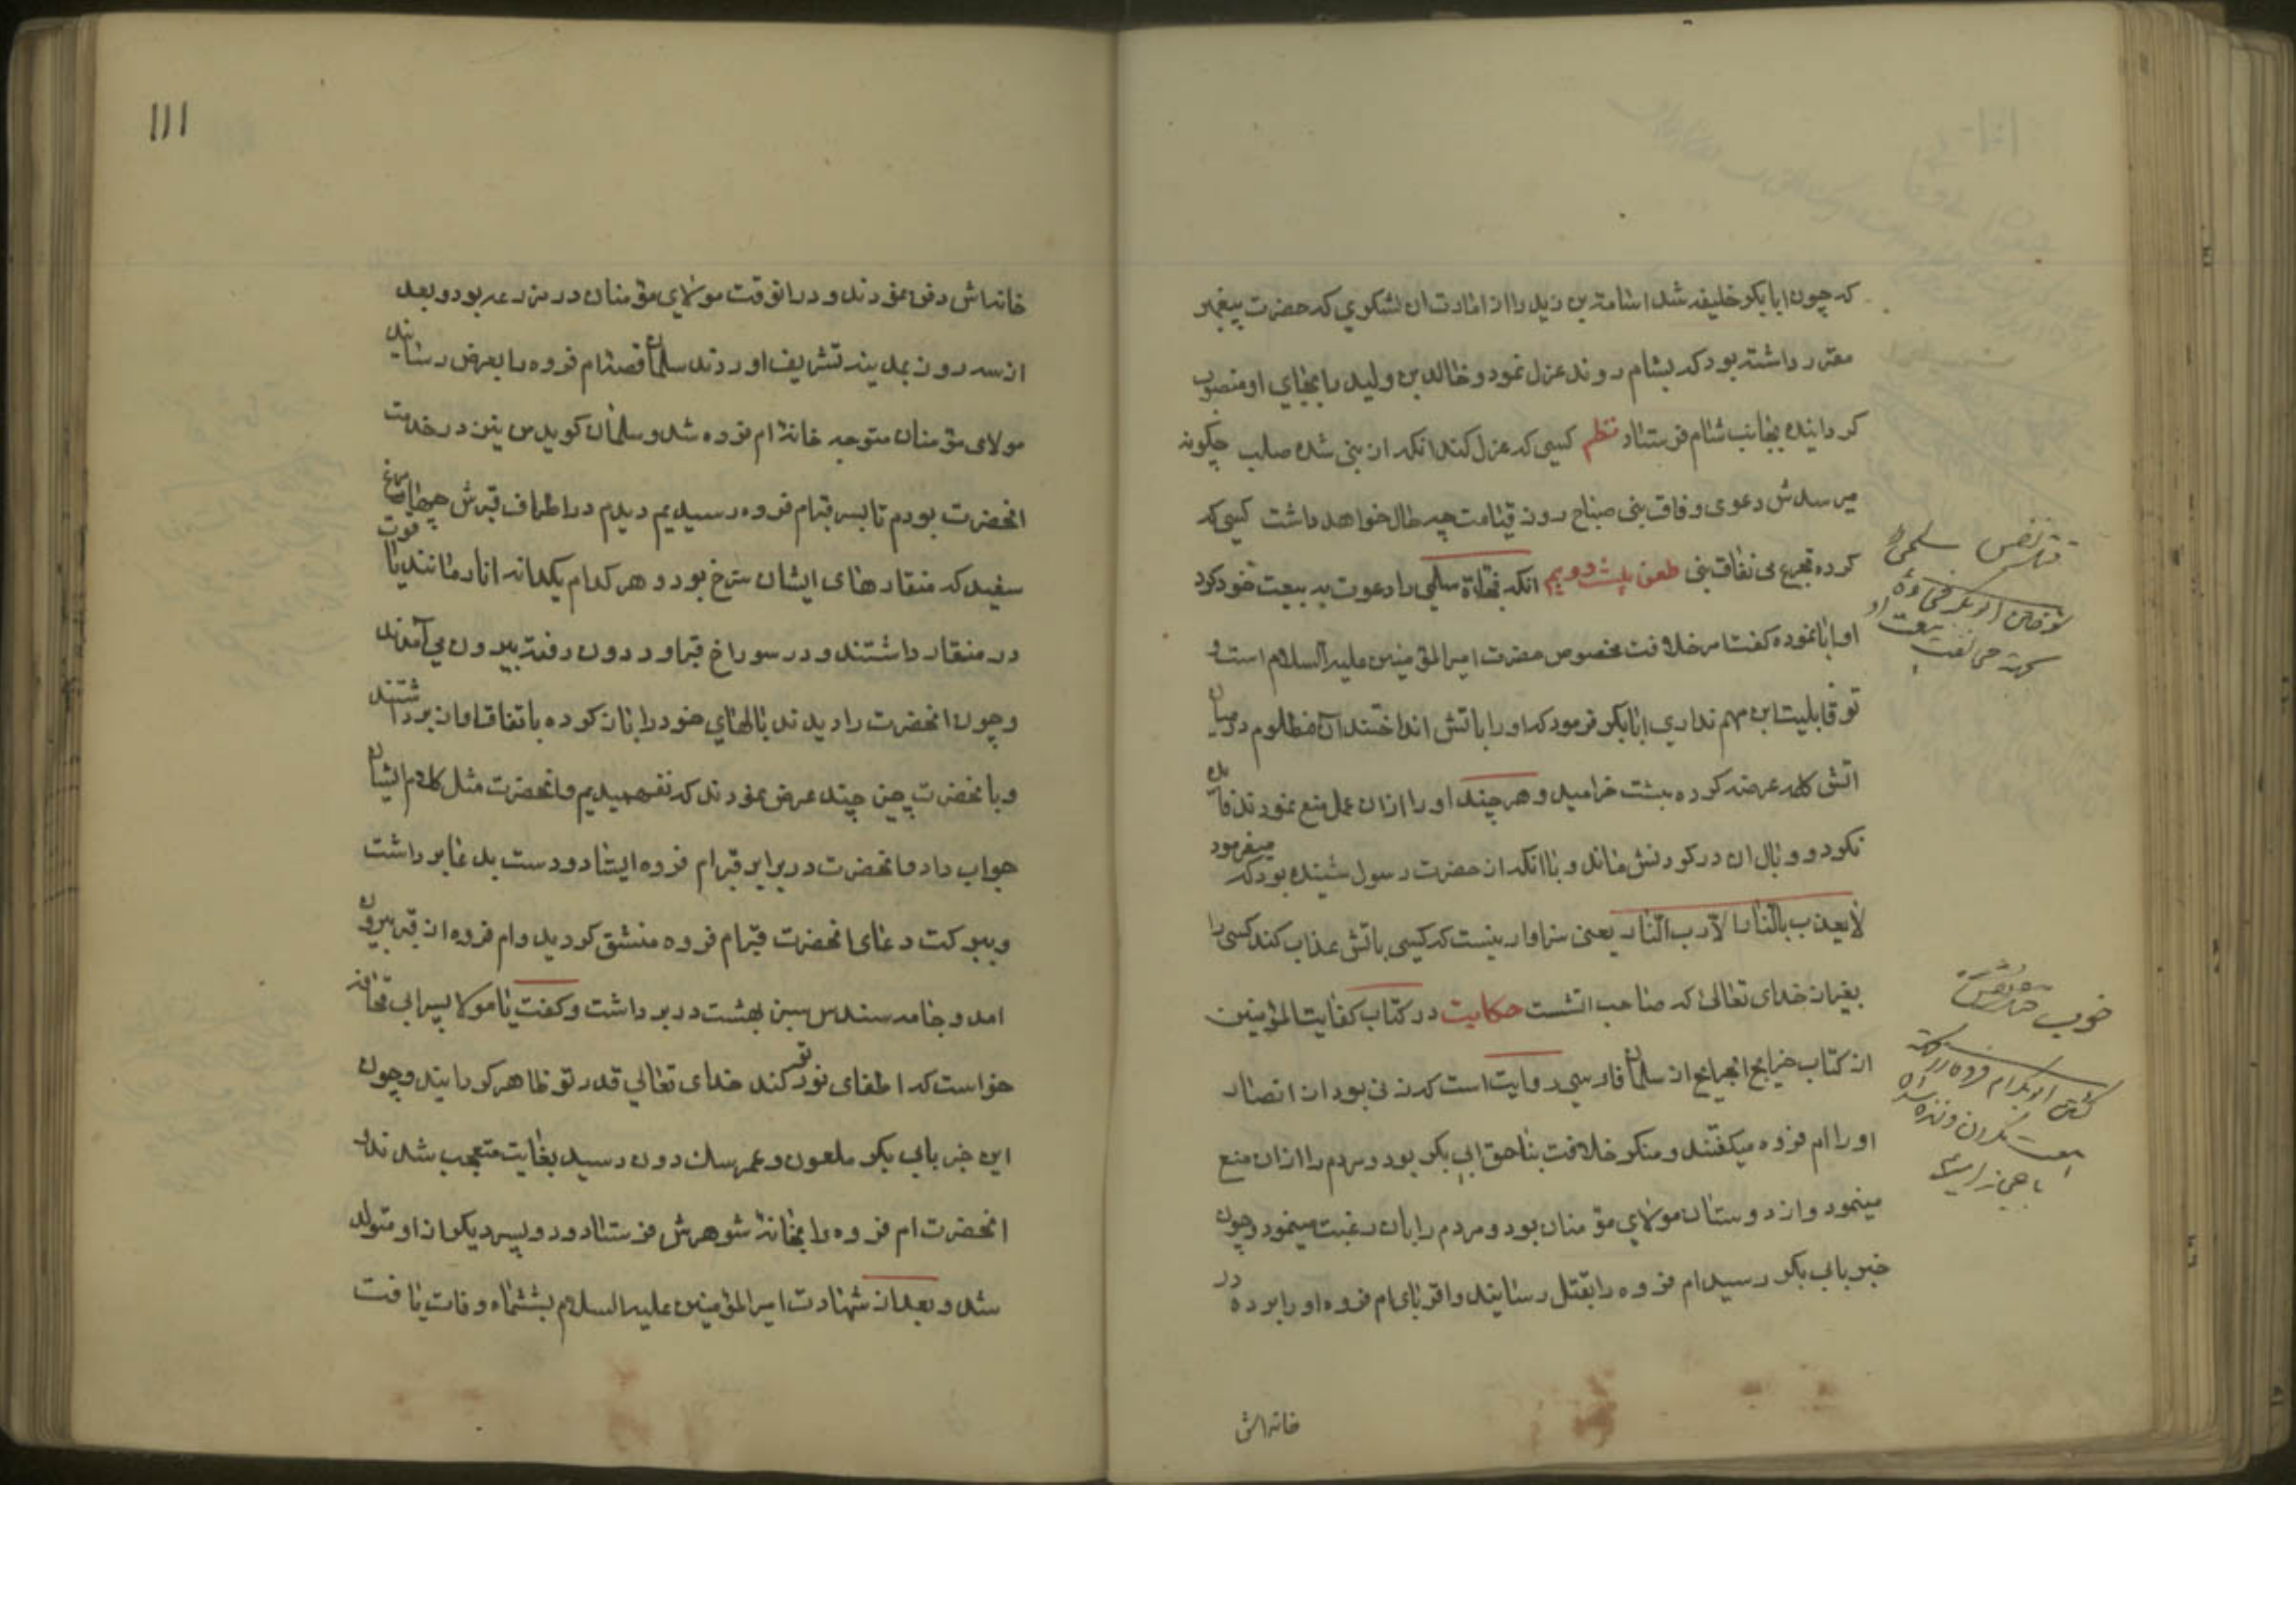 که چون ابابکر خلیفه شد اسامة بن زید را از امارت ان لشکری که حضرت پیغمبر
مقرر داشته بود که بشام روند عزل نمود و خالد بن ولید را بجای او منصوب
کردانیده بجانب شام فرستاد نظم کسی که عزل کند انکه از نبی شده صلب چگونه
میرسدش دعوی وفاق نبی صباح روز قیامت چه حال خواهد داشت کسی که
کرده تجرع می نفاق نبی طعن بیست دویم انکه فجاءة سلمی را دعوت به بیعت خود کرد
او ابا نموده کفت امر خلافت مخصوص حضرت امیرالمؤمنین علیه السلام است و
تو قابلیت این مهم نداری ابابکر فرمود که او را باتش انداختند آن مظلوم در میان
اتش کلمه عرضه کرده ببهشت خرامید و هر چند او را ازان عمل منع نمودند فایده
نکرد و وبال ان در کردنش ماند و با انکه از حضرت رسول شنیده بود که میفرمود
لا یعذب بالنار الا رب النار یعنی سزاوار نیست که کسی باتش عذاب کند کسی را
بغیر از خدای تعالی که صاحب اتشست حکایت در کتاب کفایت المؤمنین
از کتاب خرایج الجرایح از سلمان فارسی روایت است که زنی بود از انصار
او را ام فروه میکفتند و منکر خلافت بناحق ابی بکر بود و مردم را ازان منع
مینمود و از دوستان مولای مؤمنان بود و مردم را بان رغبت مینمود و چون
خبر بابی بکر رسید ام فروه را بقتل رسانیند و اقربای ام فروه او را برده در
خانه اش
سلمی را
سوختن ابو بکر فجاءة
بیعت او
خوب
کشتن ابو بکر ام فروه را
111
خانه اش دفن نمودند و درانوقت مولای مؤمنان در مزرعه بود و بعد
از سه روز بمدینه تشریف اوردند سلمان قصه ام فروه را بعرض رسانید
مولای مؤمنان متوجه خانه ام فروه شد و سلمان کوید من نیز در خدمت
انحضرت بودم تا بسر قبر ام فروه رسیدیم دیدم در اطراف قبرش چهار مرغ
سفید که منقارهای ایشان سرخ بود و هر کدام یکدانه انار مانند یاقوت
در منقار داشتند و در سوراخ قبر او درون رفته بیرون می آمدند
و چون انحضرت را دیدند بالهای خود را باز کرده باتفاق اواز برداشتند
و بانحضرت چیزی چند عرض نمودند که نفهمیدیم و انحضرت مثل کلام ایشان
جواب داد و انحضرت در برابر قبر ام فروه ایستاد و دست بدعا برداشت
و ببرکت دعای انحضرت قبر ام فروه منشق کردید و ام فروه از قبر بیرون
امد و جامه سندس سبز بهشت در بر داشت و کفت یا مولا پسر ابی قحافه
خواست که اطفای نور تو کند خدای تعالی قدر تو ظاهر کردانید و چون
این خبر بابی بکر ملعون و عمر سک دون رسید بغایت متعجب شدند و
انحضرت ام فروه را بخانه شوهرش فرستاد و دو پسر دیکر از او متولد
شد و بعد از شهادت امیرالمؤمنین علیه السلام بششماه وفات یافت